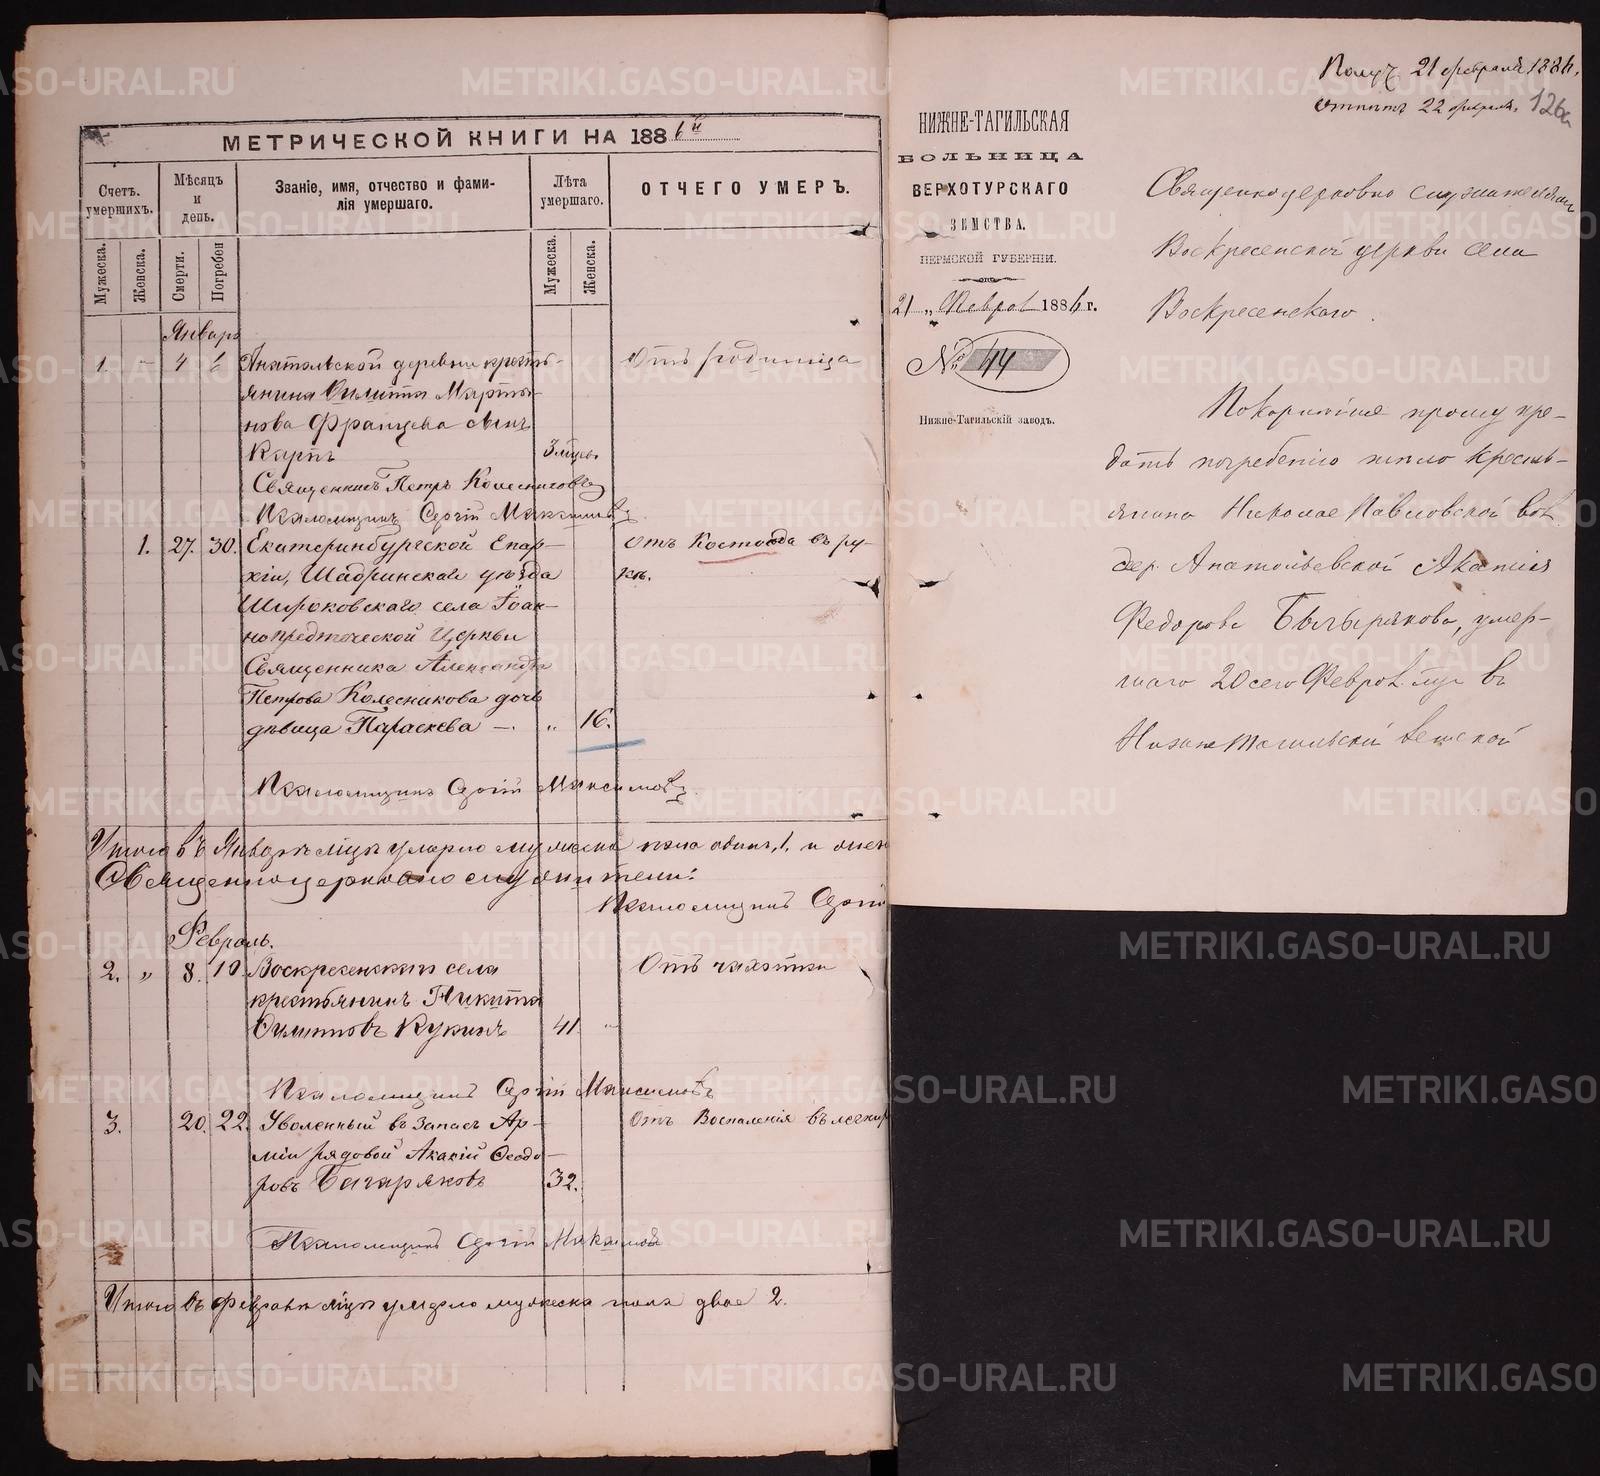 МЕТРИЧЕСКОЙ КНИГИ НА 1886й
Счетъ умершихъ.
Мѣсяцъ и день.
Званіе, имя, отчество и фами-
лія умершаго.
Лѣта умершаго.
ОТЧЕГО УМЕРЪ.
Мужеска.
Женска.
Смерти.
Погребен
Мужеска.
Женска.
Январь
1. - 4 6 Анатольской деревни кресть- Отъ родимца
янина Филиппа Марты-
нова Францева сынъ
Карпъ 3 мѣсяц.
Священникъ Петръ Колесниковъ
Псаломщикъ Сергій Максимовъ
1. 27. 30. Екатеринбургской Епар- отъ Костоѣда въ ру-
хіи, Шадринскаго уѣзда кѣ.
Широковскаго села Іоан-
нопредтеческой Церкви
Священника Александра
Петрова Колесникова дочь
дѣвица Параскева —. „ 16.
Псаломщикъ Сергій Максимовъ
Итого въ Январѣ мѣсяцѣ умерло мужеска пола одинъ, 1. и
Священноцерковно служители:
Псаломщикъ Сергій
Февраль.
2. „ 8. 10. Воскресенскаго села Отъ чахотки
крестьянинъ Никита
Филипповъ Кукинъ 41. „
Псаломщикъ Сергій Максимовъ
3. 20. 22. Уволенный въ запасъ Ар- Отъ Воспаленія въ легких
міи рядовой Акакій Ѳеодо-
ровъ Багаряковъ 32.
Псаломщикъ Сергій Максимовъ
Итого въ Февралѣ мѣсяцѣ умерло мужеска пола двое 2.
Получ 21 февраля 1886.
22 февраля.
126а
НИЖНЕ-ТАГИЛЬСКАЯ
БОЛЬНИЦА
ВЕРХОТУРСКАГО
ЗЕМСТВА.
ПЕРМСКОЙ ГУБЕРНІИ.
21 „ Феврал 1886 г.
№ 44
Нижне-Тагильскій заводъ.
Священноцерковно служителям
Воскресенской церкви села
Воскресенскаго.
Покорнѣйше прошу пре-
дать погребенію тѣло кресть-
янина Николае Павловской вол.
дер. Анатольевской Акакія
Федорова умер-
шаго 20 сего Феврал въ
Нижне Тагильской Земской
METRIKI.GASO-URAL.RU